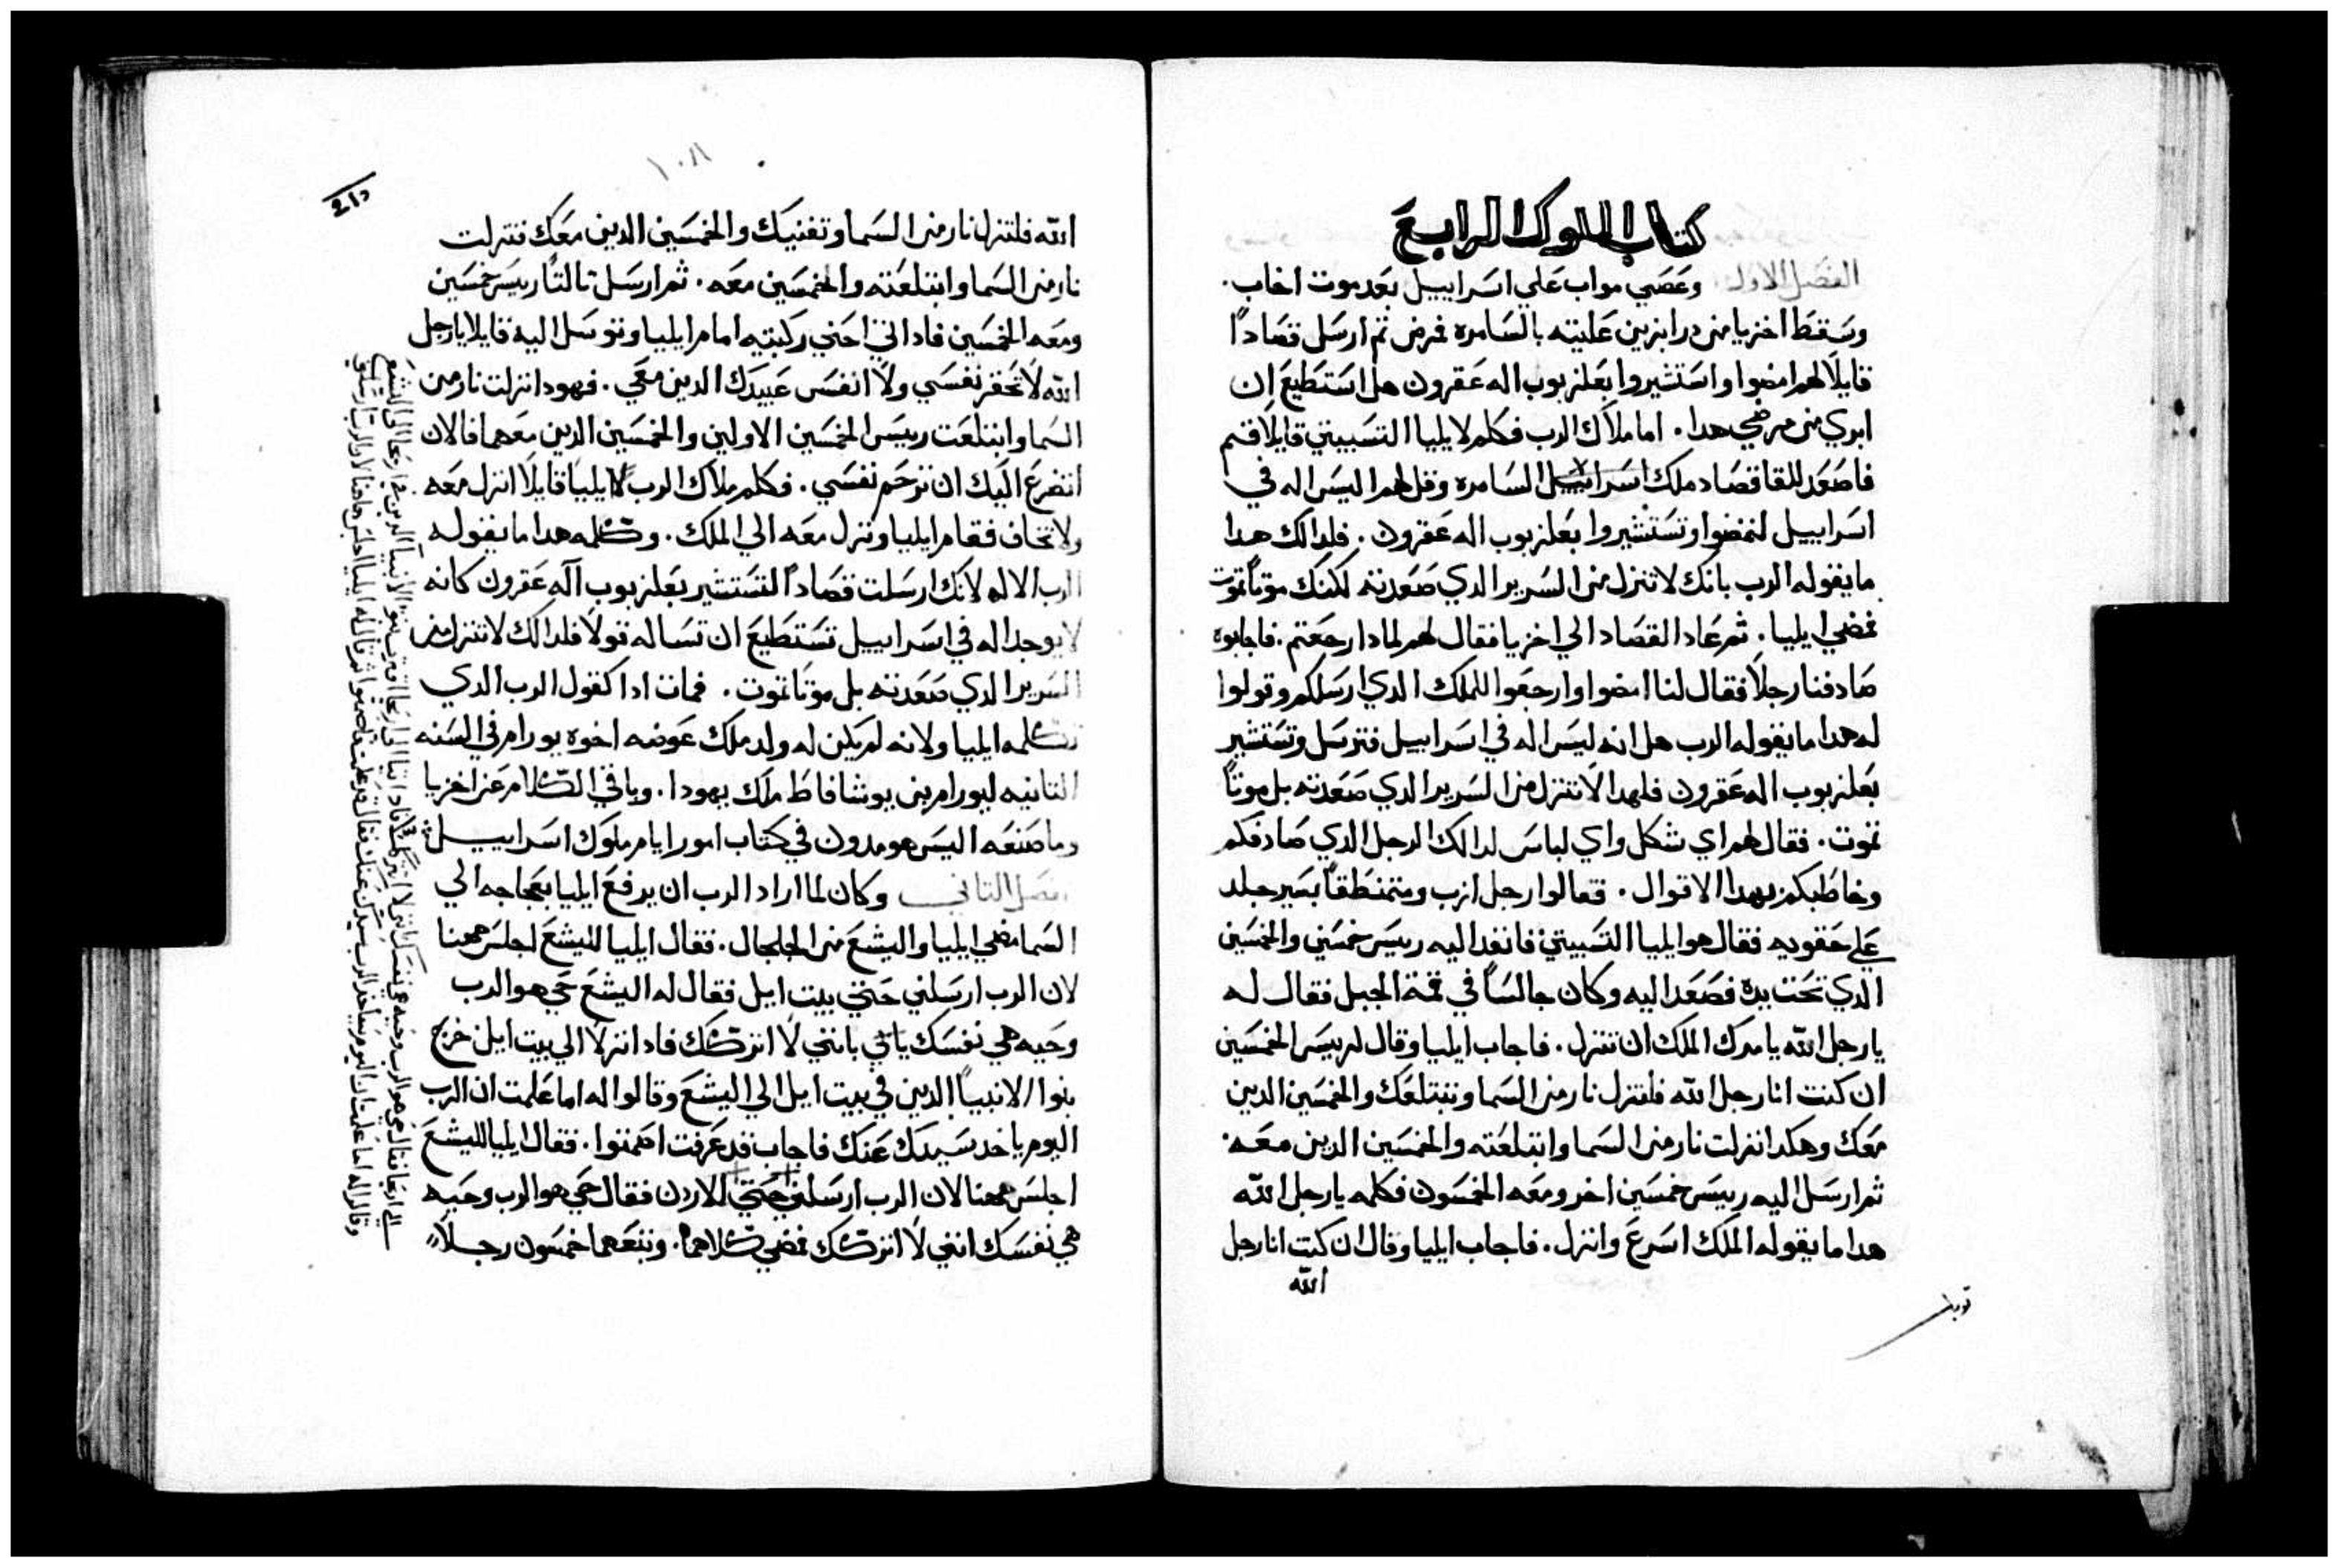 كتاب الملوك الرابع
الفصل الاول وعصي مواب علي اسراييل بعد موت اخاب.
وسقط اخزيا من درابزين عليته بالسامره فمرض ثم ارسل قصادًا
قايلًا لهم امضوا واستشيروا بعلزبوب اله عقرون هل استطيع ان
ابري من مرضي هدا. اما ملاك الرب فكلم لايليا التسبيتي قايلًا قم
فاصعد للقا قصاد ملك اسراييل السامره وقل لهم اليس اله في
اسراييل لتمضوا وتستشيروا بعلزبوب اله عقرون. فلدالك هدا
ما يقوله الرب بانك لا تنزل من السرير الدي صعدته لكنك موتًا تموت
فمضي ايليا. ثم عاد القصاد الي اخزيا فقال لهم لمادا رجعتم. فاجابوه
صادفنا رجلًا فقال لنا امضوا وارجعوا للملك الدي ارسلكم وقولوا
له هدا ما يقوله الرب هل انه ليس اله في اسراييل فترسل وتستشير
بعلزبوب اله عقرون فلهدا لا تنزل من السرير الدي صعدته بل موتًا
تموت. فقال لهم اي شكل واي لباس لدالك الرجل الدي صادفكم
وخاطبكم بهدا الاقوال. فقالوا رجل ازب ومتمنطقًا بسير جلد
علي حقويه فقال هو ايليا التسبيتي فانفد اليه رييس خمسين والخمسين
الدي تحت يده فصعد اليه وكان جالسًا في قمة الجبل فقال له
يا رجل الله يامرك الملك ان تنزل. فاجاب ايليا وقال لرييس الخمسين
ان كنت انا رجل الله فلتنزل نار من السما وتبتلعك والخمسين الدين
معك وهكدا نزلت نار من السما وابتلعته والخمسين الدين معه.
ثم ارسل اليه رييس خمسين اخر ومعه الخمسون فكلمه يا رجل الله
هدا ما يقوله الملك اسرع وانزل. فاجاب ايليا وقال ان كنت انا رجل
الله
١٠٨
الله فلتنزل نار من السما وتفنيك والخمسين الدين معك فنزلت
نار من السما وابتلعته والخمسين معه. ثم ارسل تالتًا رييس خمسين
ومعه الخمسين فادا اتي احني ركبتيه امام ايليا وتوسل اليه قايلا يا رجل
الله لا تحقر نفسي ولا انفس عبيدك الدين معي. فهودا نزلت نار من
السما وابتلعت رييس الخمسين الاولين والخمسين الدين معهما فالان
اتضرع اليك ان ترحم نفسي. فكلم ملاك الرب لايليا قايلًا انزل معه
ولا تخاف فقام ايليا ونزل معه الي الملك. وكلمه هدا ما يقوله
الرب الاله لانك ارسلت قصادًا لتستشير بعلزبوب اله عقرون كانه
لا يوجد اله في اسراييل تستطيع ان تساله قولًا فلدالك لا تنزل من
السرير الدي صعدته بل موتًا تموت. فمات ادا كقول الرب الدي
تكلمه ايليا ولانه لم يكن له ولد ملك عوضه اخوه يورام في السنه
التانيه ليورام بن يوشافاط ملك يهودا. وباقي الكلام عن اخزيا
وما صنعه اليس هو مدون في كتاب امور ايام ملوك اسراييل
الفصل التاني وكان لما اراد الرب ان يرفع ايليا بعجاجه الي
السما مضي ايليا واليشع من الجلجال. فقال ايليا لليشع اجلس ههنا
لان الرب ارسلني حتي بيت ايل فقال له اليشع حي هو الرب
وحيه هي نفسك باني لا اتركك فادا نزلا الي بيت ايل خرج
بنوا الانبيا الدين في بيت ايل الي اليشع وقالوا له اما علمت ان الرب
اليوم ياخد سيدك عنك فاجاب قد عرفت اصمتوا. فقال ايليا لليشع
اجلس ههنا لان الرب ارسلني حتي الاردن فقال حي هو الرب وحيه
هي نفسك انني لا اتركك فمضي كلاهما. وتبعهما خمسون رجلًا